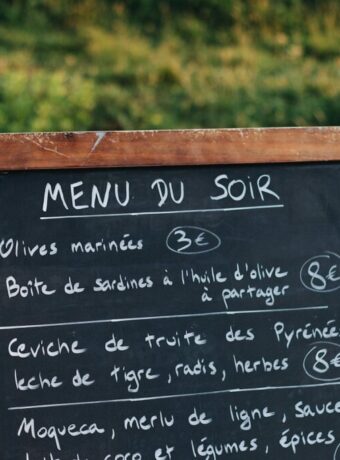 MENU DU SOIR
Olives marinées 3€
Boîte de sardines à l'huile d'olive
à partager 8€
Ceviche de truite des Pyrénée
leche de tigre, radis, herbes 8€
Moqueca, merlu de ligne, sauce
coco et légumes, épices